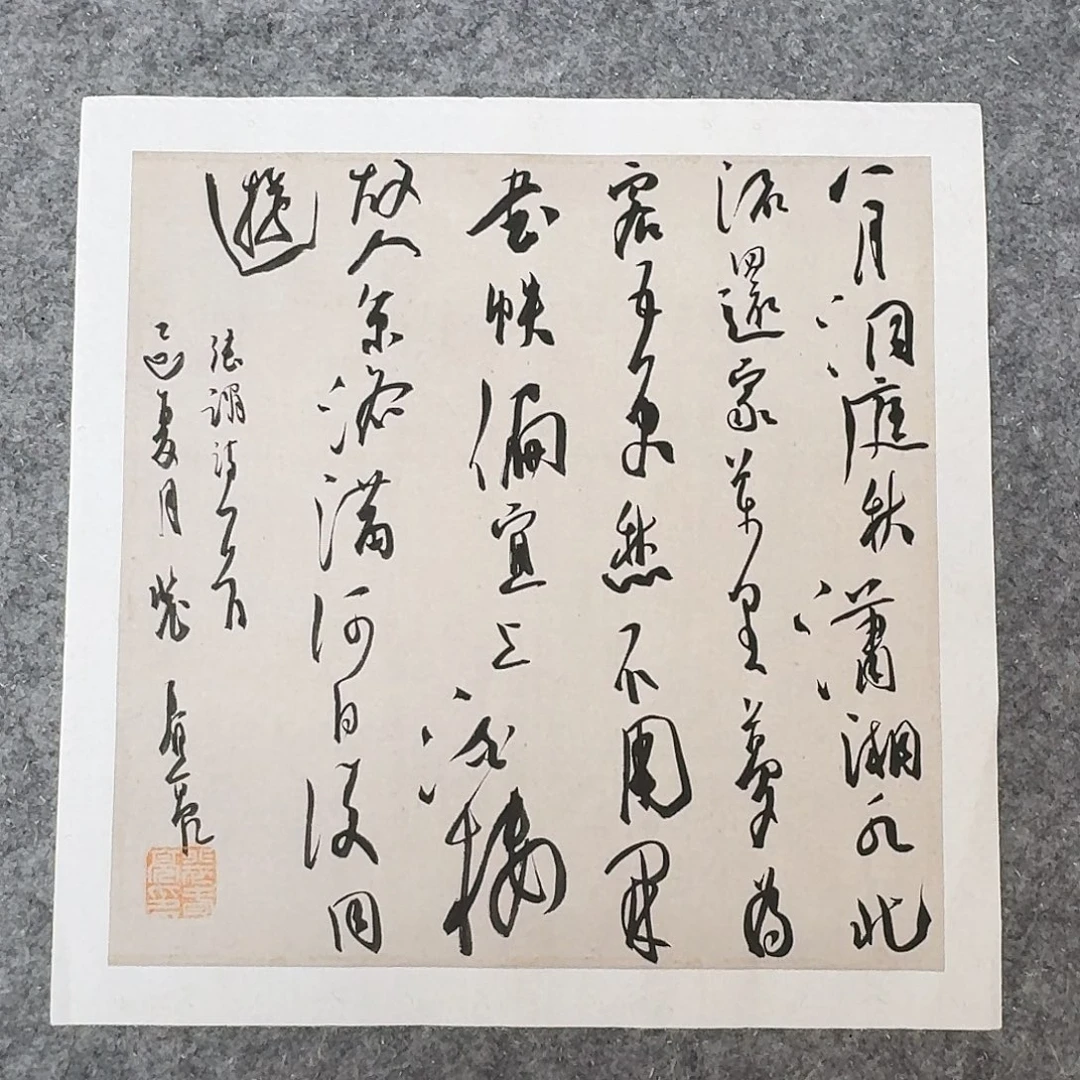 八月洞庭秋瀟湘水北
流還家萬里夢為
客五更愁不用開
書帙偏宜上酒樓
故人京洛滿何日復同
遊
張謂詩一首
乙巳夏月裴